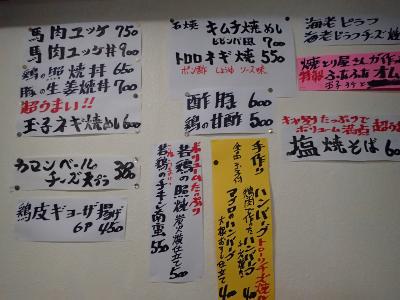 馬肉ユッケ 750
馬肉ユッケ丼 900
鶏の照焼丼 650
豚の生姜焼丼 700
超うまい!!
玉子ネギ焼めし 600
カマンベール
チーズ天プラ 380
鶏皮ギョーザ揚げ
6P 450
石焼
キムチ焼めし
ビビンバ風 700
トロロネギ焼 550
ポン酢 しょうゆ ソース味
酢豚 600
鶏の甘酢 500
ボリュームたっぷり
若鶏の照焼 炭火焼仕立て 500
若鶏のチキン南蛮 550
手作り
ハンバーグ
マグロのハンバーグ
大根おろし仕立て 400
海老ピラフ
海老ピラフチーズ焼
焼とり屋さんが作る
特製 ふあふあオム
キャベツたっぷりで
ボリューム満点
塩焼そば 600